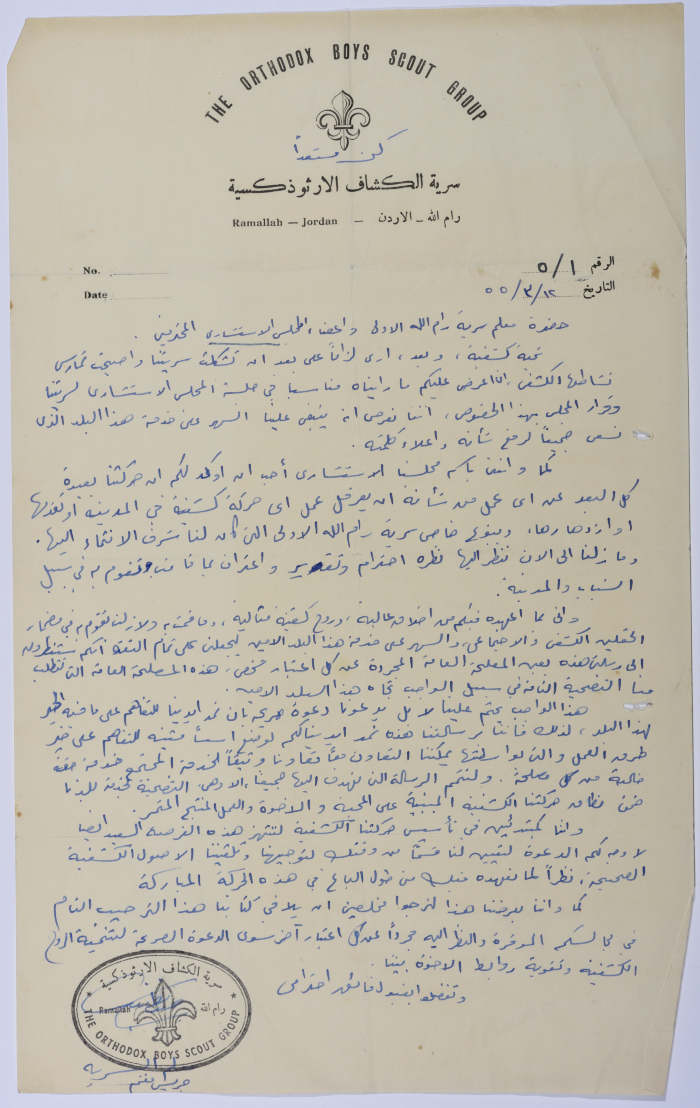 THE ORTHODOX BOYS SCOUT GROUP
كن مستعداً
سرية الكشاف الارثوذكسية
Ramallah — Jordan — رام الله - الاردن
No. الرقم ٥/١
Date التاريخ ٥٥/٣/١٢
حضرة معلم سرية رام الله الاولى واعضاء المجلس الاستشاري المحترمين.
تحية كشفية، وبعد، ارى لزاماً علي بعد ان تشكلت سريتنا واصبحت تمارس
نشاطها الكشفي ان اعرض عليكم ما رايناه مناسبا في جلسة المجلس الاستشاري لسريتنا
وقرار المجلس بهذا الخصوص، اننا نعرض انه ينبغي علينا السهر على خدمة هذا البلد الذي
نسعى جميعاً لرفع شأنه واعلاء كلمته.
كما وانني باسم مجلسنا الاستشاري أحب ان اوكد لكم ان حركتنا بعيدة
كل البعد عن اى عمل من شأنه ان يعرقل عمل اى حركة كشفية في المدينة او تقدمها
او ازدهارها، وبنوع خاص سرية رام الله الاولى التي كان لنا شرف الانتماء اليها.
وما زلنا الى الان ننظر اليها نظرة احترام وتقدير واعتراف بما قامت وتقوم به في سبيل
الشباب والمدينة.
واني بما اعهده فيكم من اخلاق عالية، وروح كشفية مثالية، وما قمتم به ولا زلتم تقوم به في مضمار
الحقلين الكشفي والاجتماعي، والسهر على خدمة هذا البلد الامين ليجعلني على تمام الثقة انكم ستنظرون
الى رسالتي هذه بعين المصلحة العامة المجردة عن كل اعتبار شخصي، هذه المصلحة العامة التي تتطلب
منا التضحية التامة في سبيل الواجب تجاه هذا البلد الامين.
هذا الواجب يحتم علينا لا بل يدعونا دعوة صريحة بان نمد ايدينا للتفاهم على ما فيه الخير
لهذا البلد، لذلك فاننا برسالتنا هذه نمد ايدينا لكم لوضع أسساً متينة للتفاهم على خير
طرق العمل والتي بواسطتها يمكننا التعاون معاً تعاونا وثيقاً لخدمة المجتمع خدمة حقة
خالية من كل مصلحة. ولنتمم الرسالة التي نهدف اليها جميعا، الا وهي التضحية لخدمة بلدنا
ضمن نطاق حركتنا الكشفية المبنية على المحبة والاخوة والعمل المنتج المثمر.
واننا كمبتدئين في تأسيس حركتنا الكشفية لننتهز هذه الفرصة السعيدة ايضا
لاوجه لكم الدعوة لتعيين لنا قسماً من وقتك لتوجيهنا وتلقيننا الاصول الكشفية
الصحيحة، نظراً لما نعهده فيك من طول الباع في هذه الحركة المباركة
كما واننا بعرضنا هذا لنرجوا مخلصين ان يلاقي كتابنا هذا الترحيب التام
في مجالسكم الموقرة والنظر اليه مجرداً عن كل اعتبار آخر سوى الدعوة الصريحة لتنمية الروح
الكشفية وتقوية روابط الاخوة بيننا.
وتفضلوا بقبول فائق احترامي
سرية الكشاف الارثوذكسية
Ramallah رام الله
THE ORTHODOX BOYS SCOUT GROUP
السرية